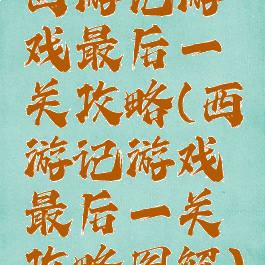 西游记游
戏最后一
关攻略(西
游记游戏
最后一关
攻略图解)